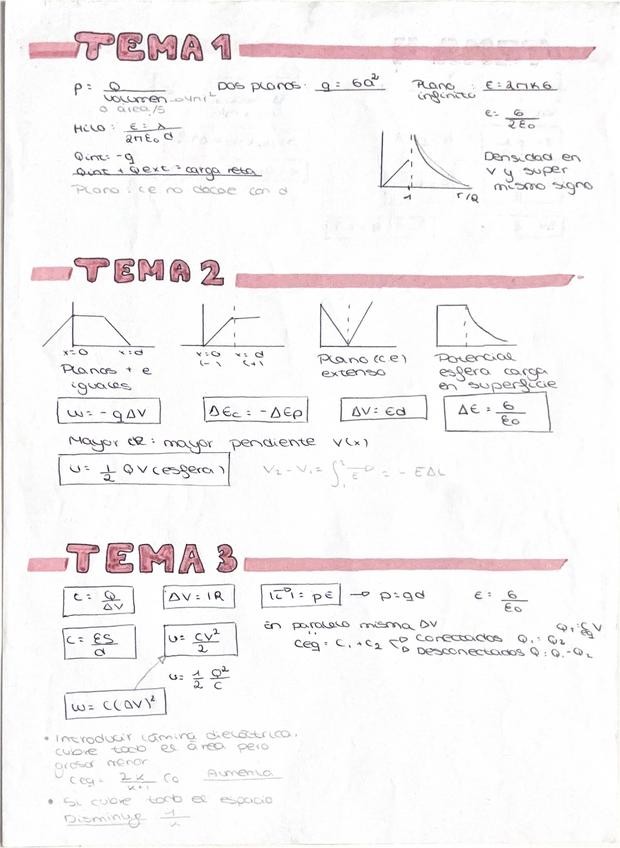 TEMA 1
ρ = Q / volumen
o área/S
Dos planos: q = σa²
Plano infinito : E = 2πKσ
E = σ / 2ε₀
Hilo : E = λ / 2πε₀ d
Qint = -q
Qint + Qext = carga neta
Plano : CE no decae con d
1 r/R
Densidad en
V y super
mismo signo
TEMA 2
x=0 x=d
Planos + e
iguales
x=0 x=d
(-) (+)
Plano (CE)
extenso
Potencial
esfera carga
en superficie
W = -qΔV
ΔEc = -ΔEp
ΔV = Ed
ΔE = σ / ε₀
Mayor CE : mayor pendiente V(x)
U = 1/2 QV (esfera)
V₂ - V₁ = = - EΔL
TEMA 3
C = Q / ΔV
ΔV = IR
|τ| = pE → p = qd
E = σ / ε₀
C = εS / d
U = CV² / 2
En paralelo misma ΔV
Ceq = C₁ + C₂
Conectados Q₁ = Q₂
Desconectados Q = Q₁ - Q₂
U = 1/2 Q² / C
W = C(ΔV)²
• Introducir lámina dieléctrica,
cubre todo el área pero
grosor menor
Ceq = 2K / K+1 C₀ Aumenta
• Si cubre todo el espacio
Disminuye 1/K